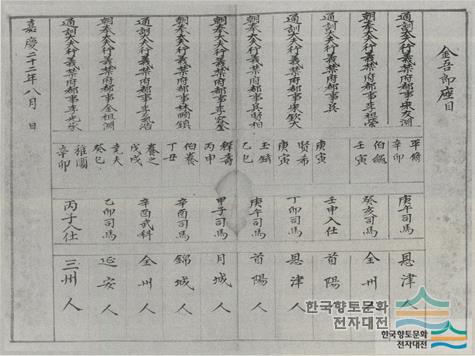 金吾郎座目
通訓大夫行義禁府都事宋友淵 辛卯 庚午司馬 恩津人
朝奉大夫行義禁府都事李祖榮 壬寅 癸亥司馬 全州人
通訓大夫行義禁府都事吳 庚寅 壬申入仕 首陽人
通訓大夫行義禁府都事宋欽大 賢希 庚寅 丁卯司馬 恩津人
朝奉大夫行義禁府都事吳賢相 乙巳 庚午司馬 首陽人
朝奉大夫行義禁府都事李容奎 稺壽 丙申 甲子司馬 月城人
朝奉大夫行義禁府都事林顯鎮 伯養 丁丑 辛酉司馬 錦城人
通訓大夫行義禁府都事李 養之 戊戌 辛酉武科 全州人
朝奉大夫行義禁府都事金祖淵 堯夫 癸巳 乙卯司馬 延安人
通訓大夫行義禁府都事李 稚順 辛卯 丙子入仕 三州人
嘉慶二十二年八月 日
한국향토문화
전자대전
한국향토문화
전자대전